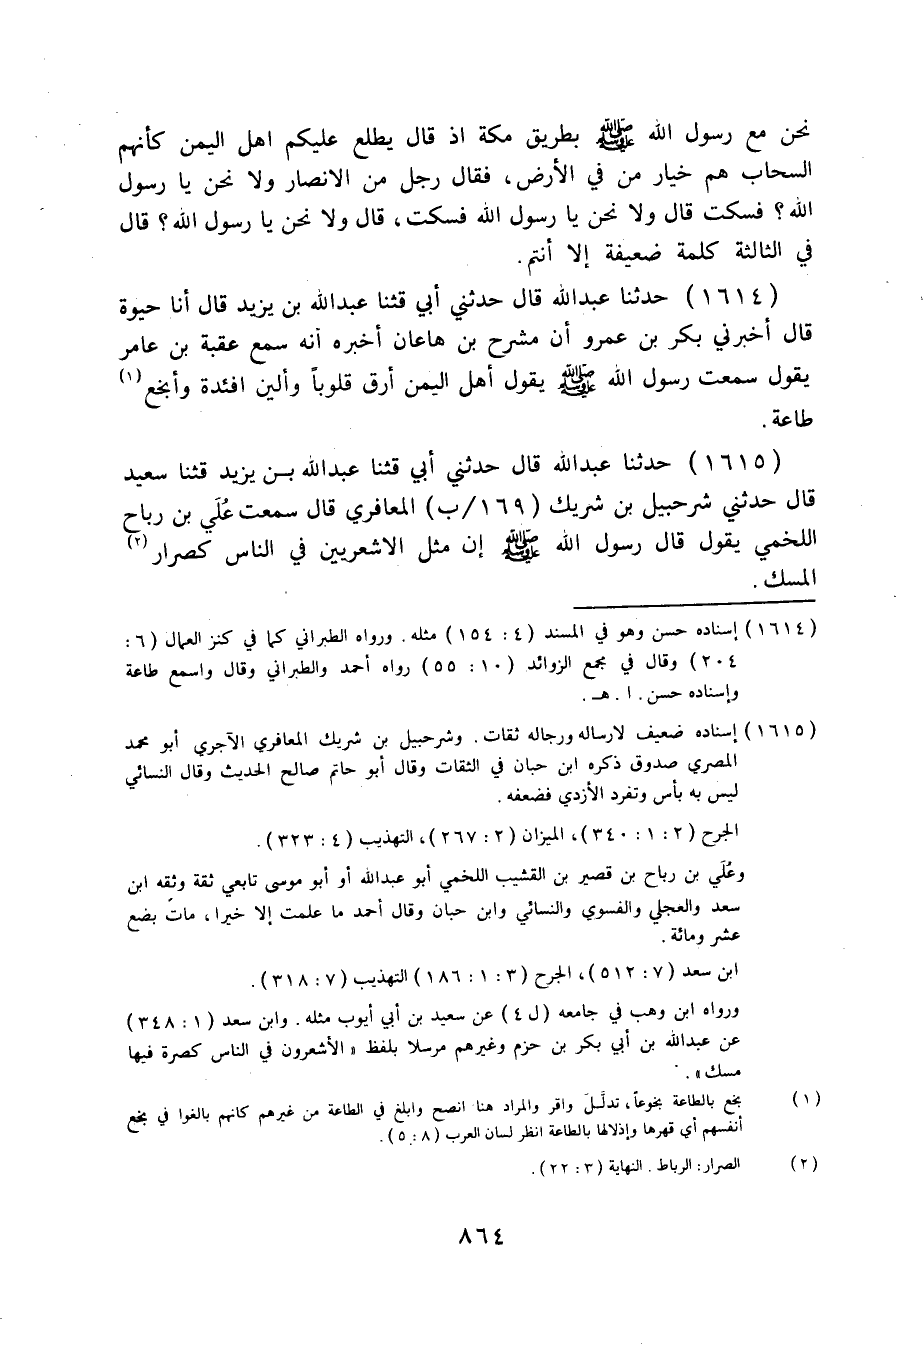 نحن مع رسول الله ﷺ بطريق مكة اذ قال يطلع عليكم اهل اليمن كأنهم
السحاب هم خيار من في الأرض، فقال رجل من الانصار ولا نحن يا رسول
الله؟ فسكت قال ولا نحن يا رسول الله فسكت، قال ولا نحن يا رسول الله؟ قال
في الثالثة كلمة ضعيفة إلا أنتم.
(١٦١٤) حدثنا عبدالله قال حدثني أبي قثنا عبدالله بن يزيد قال أنا حيوة
قال أخبرني بكر بن عمرو أن مشرح بن هاعان أخبره أنه سمع عقبة بن عامر
يقول سمعت رسول الله ﷺ يقول أهل اليمن أرق قلوباً وألين افئدة وأبخع (١)
طاعة.
(١٦١٥) حدثنا عبدالله قال حدثني أبي قثنا عبدالله بـن يزيد قثنا سعيد
قال حدثني شرحبيل بن شريك (١٦٩/ب) المعافري قال سمعت عُلَي بن رباح
اللخمي يقول قال رسول الله ﷺ إن مثل الاشعريين في الناس كصرار (٢)
المسك.
(١٦١٤) إسناده حسن وهو في المسند (٤: ١٥٤) مثله. ورواه الطبراني كما في كنز العمال (٦:
٢٠٤) وقال في مجمع الزوائد (١٠: ٥٥) رواه أحمد والطبراني وقال واسمع طاعة
وإسناده حسن. ا. هـ.
(١٦١٥) إسناده ضعيف لارساله ورجاله ثقات. وشرحبيل بن شريك المعافري الآجري أبو محمد
المصري صدوق ذكره ابن حبان في الثقات وقال أبو حاتم صالح الحديث وقال النسائي
ليس به بأس وتفرد الأزدي فضعفه.
الجرح (٢: ١: ٣٤٠)، الميزان (٢: ٢٦٧)، التهذيب (٤: ٣٢٣).
وعُلَي بن رباح بن قصير بن القشيب اللخمي أبو عبدالله أو أبو موسى تابعي ثقة وثقه ابن
سعد والعجلي والفسوي والنسائي وابن حبان وقال أحمد ما علمت إلا خيرا، مات بضع
عشر ومائة.
ابن سعد (٧: ٥١٢)، الجرح (٣: ١: ١٨٦) التهذيب (٧: ٣١٨).
ورواه ابن وهب في جامعه (ل ٤) عن سعيد بن أبي أيوب مثله. وابن سعد (١: ٣٤٨)
عن عبدالله بن أبي بكر بن حزم وغيرهم مرسلا بلفظ «الأشعرون في الناس كصرة فيها
مسك».
(١) بخع بالطاعة بخوعاً، تدلَّلَ واقر والمراد هنا انصح وابلغ في الطاعة من غيرهم كانهم بالغوا في بخع
أنفسهم أي قهرها وإذلالها بالطاعة انظر لسان العرب (٨: ٥).
(٢) الصرار: الرباط. النهاية (٣: ٢٢).
٨٦٤